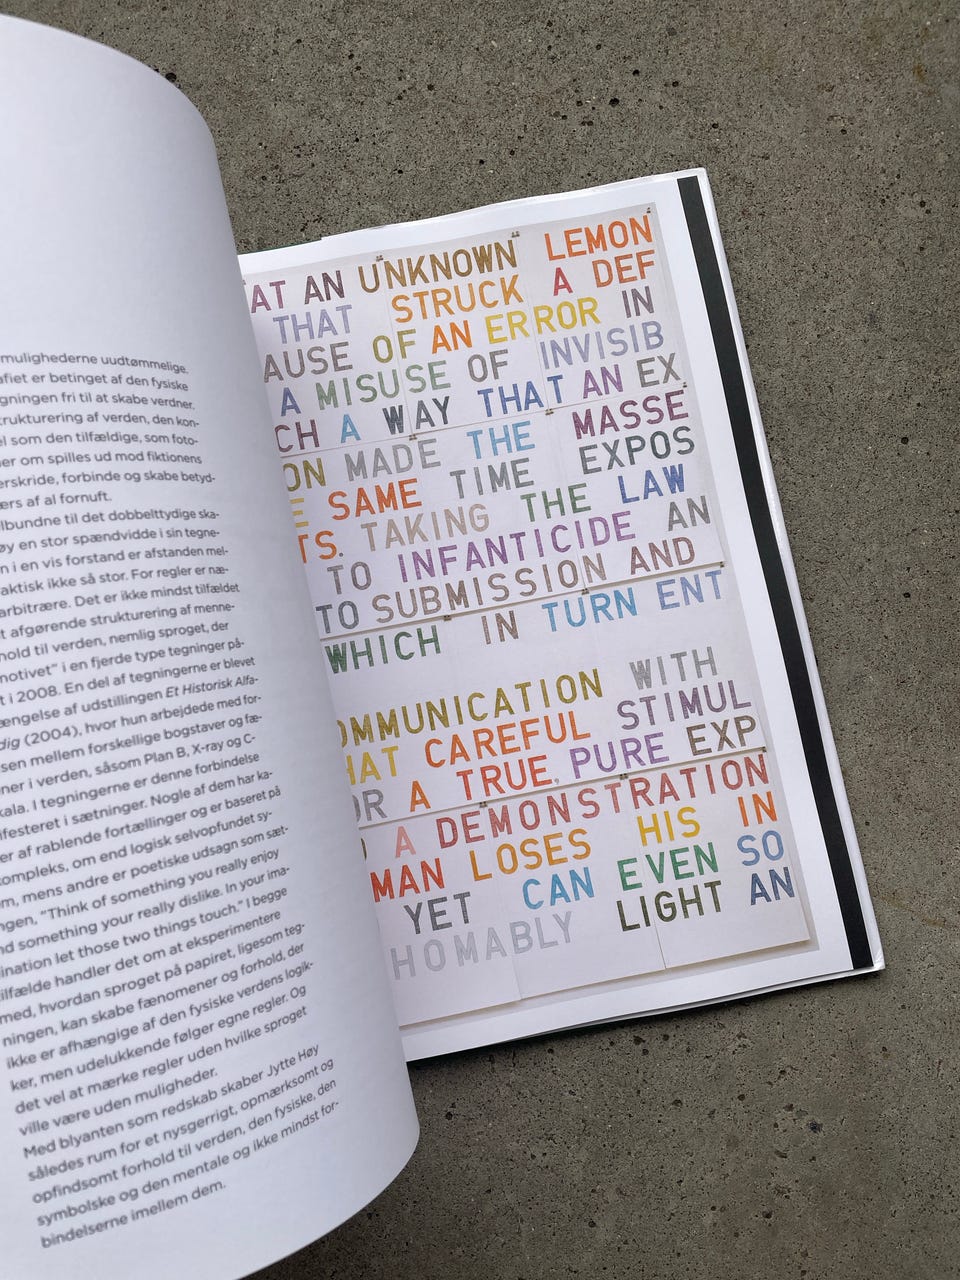 mulighederne uudtømmelige.
afiet er betinget af den fysiske
gningen fri til at skabe verdner.
trukturering af verden, den kon-
el som den tilfældige, som foto-
er om spilles ud mod fiktionens
erskride, forbinde og skabe betyd-
ers af al fornuft.
lbundne til det dobbelttydige ska-
øy en stor spændvidde i sin tegne-
n i en vis forstand er afstanden mel-
aktisk ikke så stor. For regler er næ-
arbitrære. Det er ikke mindst tilfældet
t afgørende strukturering af menne-
hold til verden, nemlig sproget, der
motivet" i en fjerde type tegninger på-
t i 2008. En del af tegningerne er blevet
ængelse af udstillingen Et Historisk Alfa-
dig (2004), hvor hun arbejdede med for-
sen mellem forskellige bogstaver og fæ-
ner i verden, såsom Plan B, X-ray og C-
kala. I tegningerne er denne forbindelse
ifesteret i sætninger. Nogle af dem har ka-
er af rablende fortællinger og er baseret på
ompleks, om end logisk selvopfundet sy-
m, mens andre er poetiske udsagn som sæt-
ngen, "Think of something you really enjoy
nd something your really dislike. In your ima-
ination let those two things touch." I begge
ilfælde handler det om at eksperimentere
med, hvordan sproget på papiret, ligesom teg-
ningen, kan skabe fænomener og forhold, der
ikke er afhængige af den fysiske verdens logik-
ker, men udelukkende følger egne regler. Og
det vel at mærke regler uden hvilke sproget
ville være uden muligheder.
Med blyanten som redskab skaber Jytte Høy
således rum for et nysgerrigt, opmærksomt og
opfindsomt forhold til verden, den fysiske, den
symbolske og den mentale og ikke mindst for-
bindelserne imellem dem.
AT AN UNKNOWN LEMON
THAT STRUCK A DEF
AUSE OF AN ERROR IN
A MISUSE OF INVISIB
CH A WAY THAT AN EX
ON MADE THE MASSE
E SAME TIME EXPOS
TS. TAKING THE LAW
TO INFANTICIDE AN
TO SUBMISSION AND
WHICH IN TURN ENT
OMMUNICATION WITH
HAT CAREFUL STIMUL
OR A TRUE, PURE EXP
A DEMONSTRATION
MAN LOSES HIS IN
YET CAN EVEN SO
HOMABLY LIGHT AN